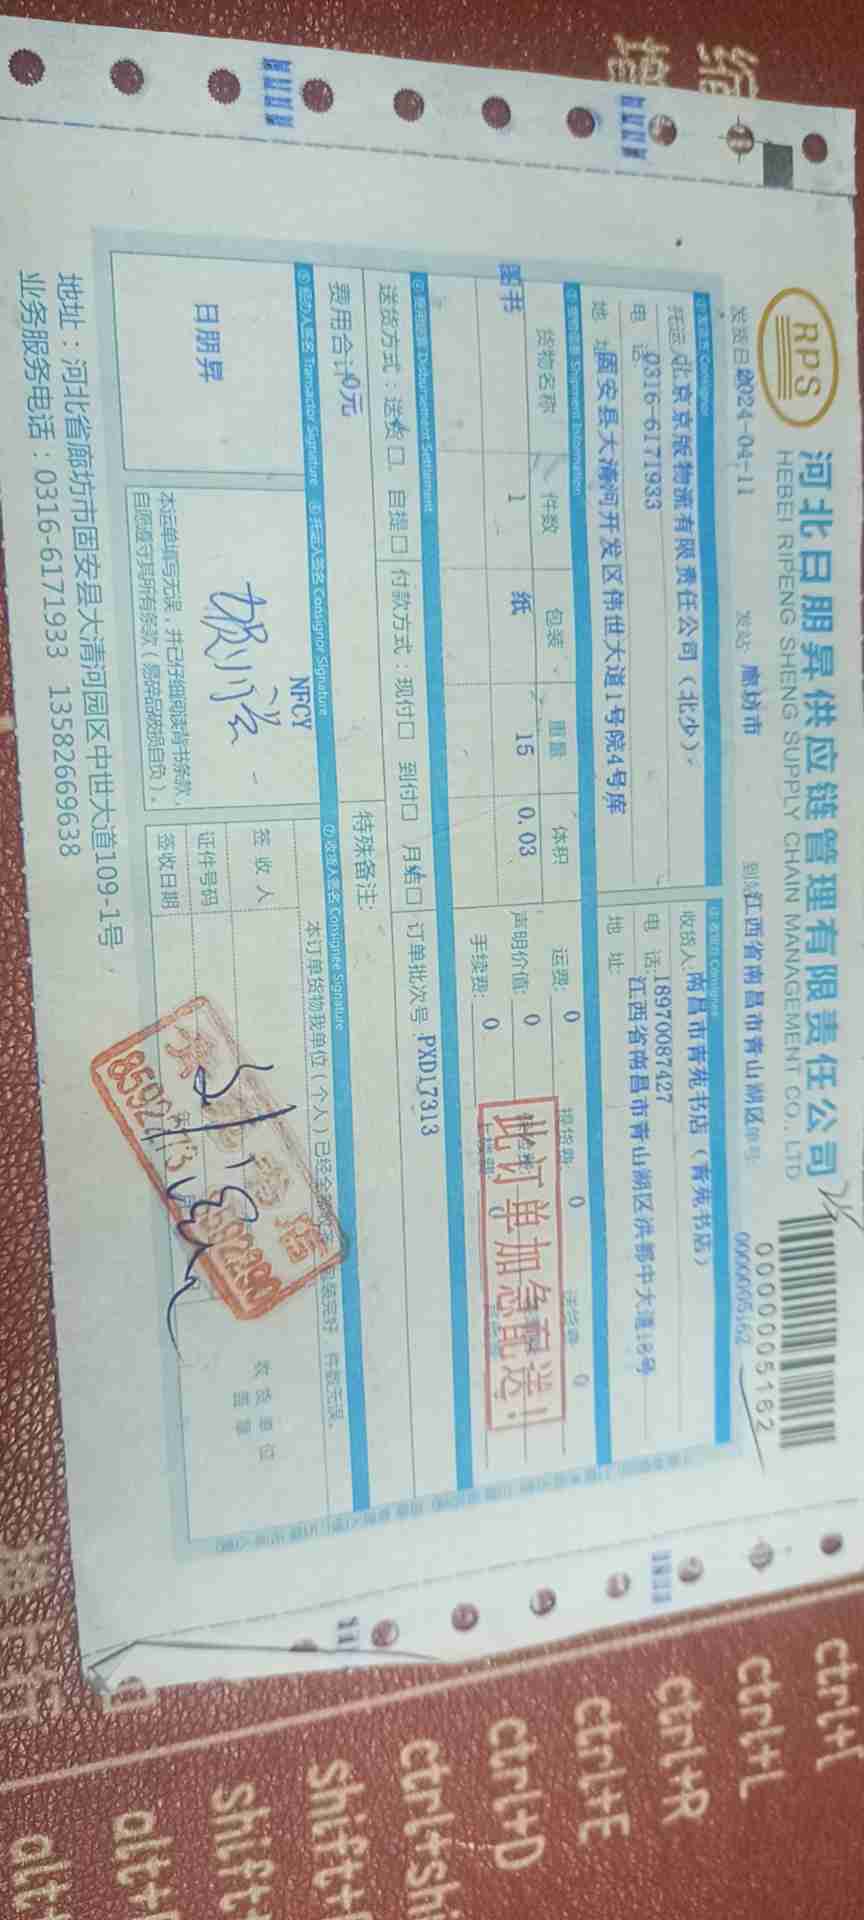 RPS
河北日朋昇供应链管理有限责任公司
HEBEI RIPENG SHENG SUPPLY CHAIN MANAGEMENT CO., LTD
0000005162
发货日期 2024-04-11 发站: 廊坊市 到站: 江西省南昌市青山湖区 单号: 0000005162
①发货方 Consignor
托运人: 北京京版物流有限责任公司(北少)
电 话: 0316-6171933
地 址: 固安县大清河开发区伟世大道1号院4号库
②收货方 Consignee
收货人: 南昌市青苑书店(青苑书店)
电 话: 18970087427
地 址: 江西省南昌市青山湖区洪都中大道18号
③货物信息 Shipment Information
货物名称 件数 包装 重量 体积
图书 1 纸 15 0.03
运费: 0 提货费: 0 送货费: 0
声明价值: 0
手续费: 0
此订单加急配送!
④费用结算 Disbursement Settlement
送货方式: 送货□ 自提□ 付款方式: 现付□ 到付□ 月结□ 订单批次号: PXD17313
费用合计: 0元
特殊备注:
⑤经办人签名 Transactor Signature ⑥托运人签名 Consignor Signature ⑦收货人签名 Consignee Signature
日朋昇
NFCY
本运单填写无误,并已仔细阅读背书条款,
自愿遵守其所有条款(易碎品破损自负)。
本订单货物我单位(个人)已经全部收 包装完好 件数无误。
签 收 人
证件号码
签收日期
收货单位
盖章
地址:河北省廊坊市固安县大清河园区中世大道109-1号
业务服务电话:0316-6171933 13582669638
ctrl+L
ctrl+R
ctrl+E
ctrl+D
ctrl+shi
shift+
shift+
alt+
alt+